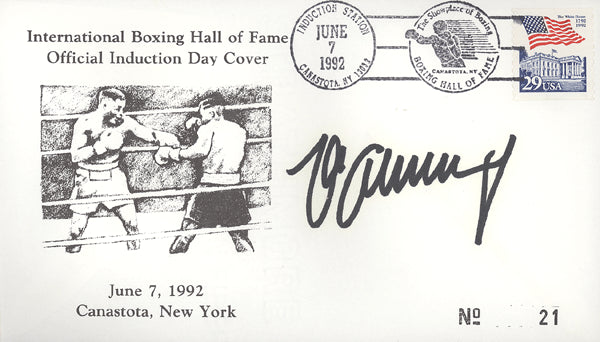 International Boxing Hall of Fame
Official Induction Day Cover
INDUCTION STATION
JUNE
7
1992
CANASTOTA, NY 13032
The Showplace of Boxing
CANASTOTA, NY
BOXING HALL OF FAME
The White House
1792
1992
29 USA
June 7, 1992
Canastota, New York
Nº 21